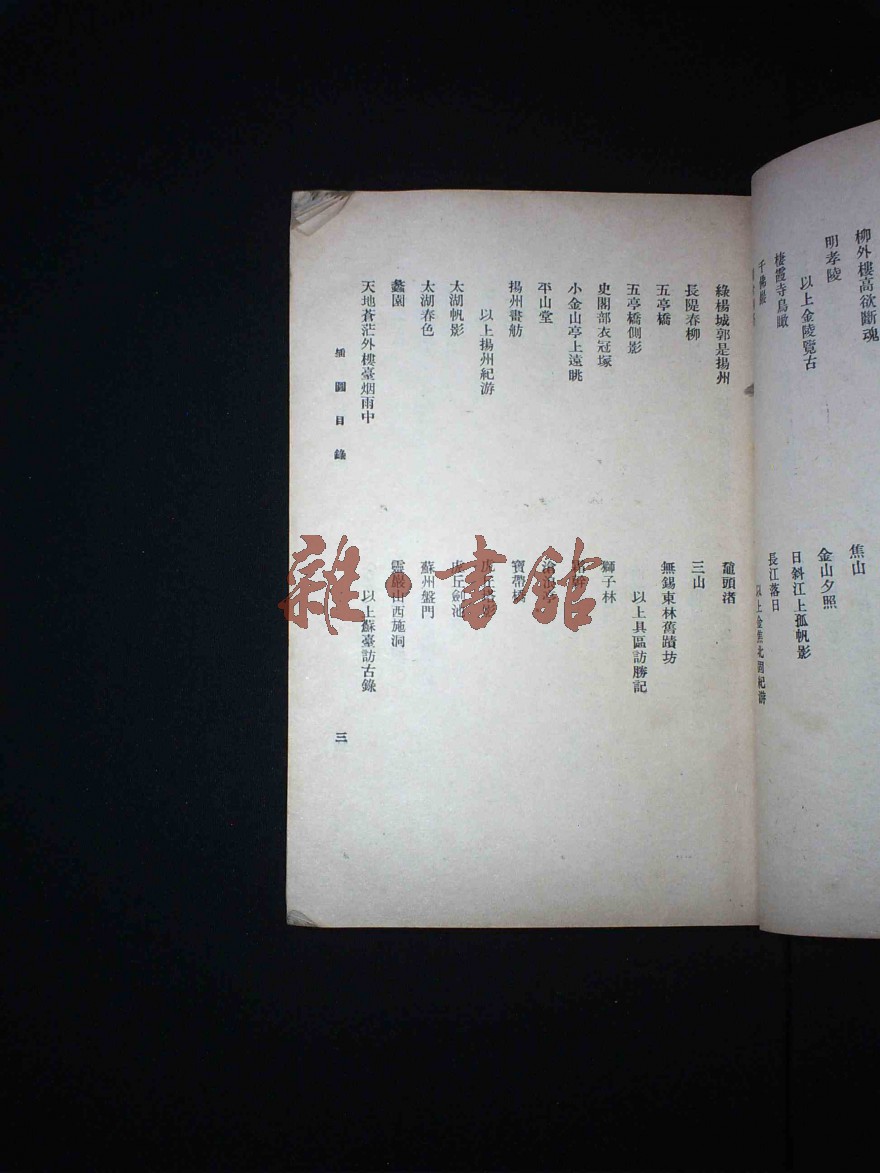 柳外樓高欲斷魂
明孝陵
以上金陵覽古
棲霞寺鳥瞰
千佛巖
焦山
金山夕照
日斜江上孤帆影
長江落日
以上金焦北固紀游
綠楊城郭是揚州
長隄春柳
五亭橋
五亭橋側影
史閣部衣冠塚
小金山亭上遠眺
平山堂
揚州畫舫
以上揚州紀游
太湖帆影
太湖春色
蠡園
天地蒼茫外樓臺烟雨中
黿頭渚
三山
無錫東林舊蹟坊
以上具區訪勝記
獅子林
寶帶橋
虎丘劍池
蘇州盤門
靈巖山西施洞
以上蘇臺訪古錄
插圖目錄
三
雜·書館